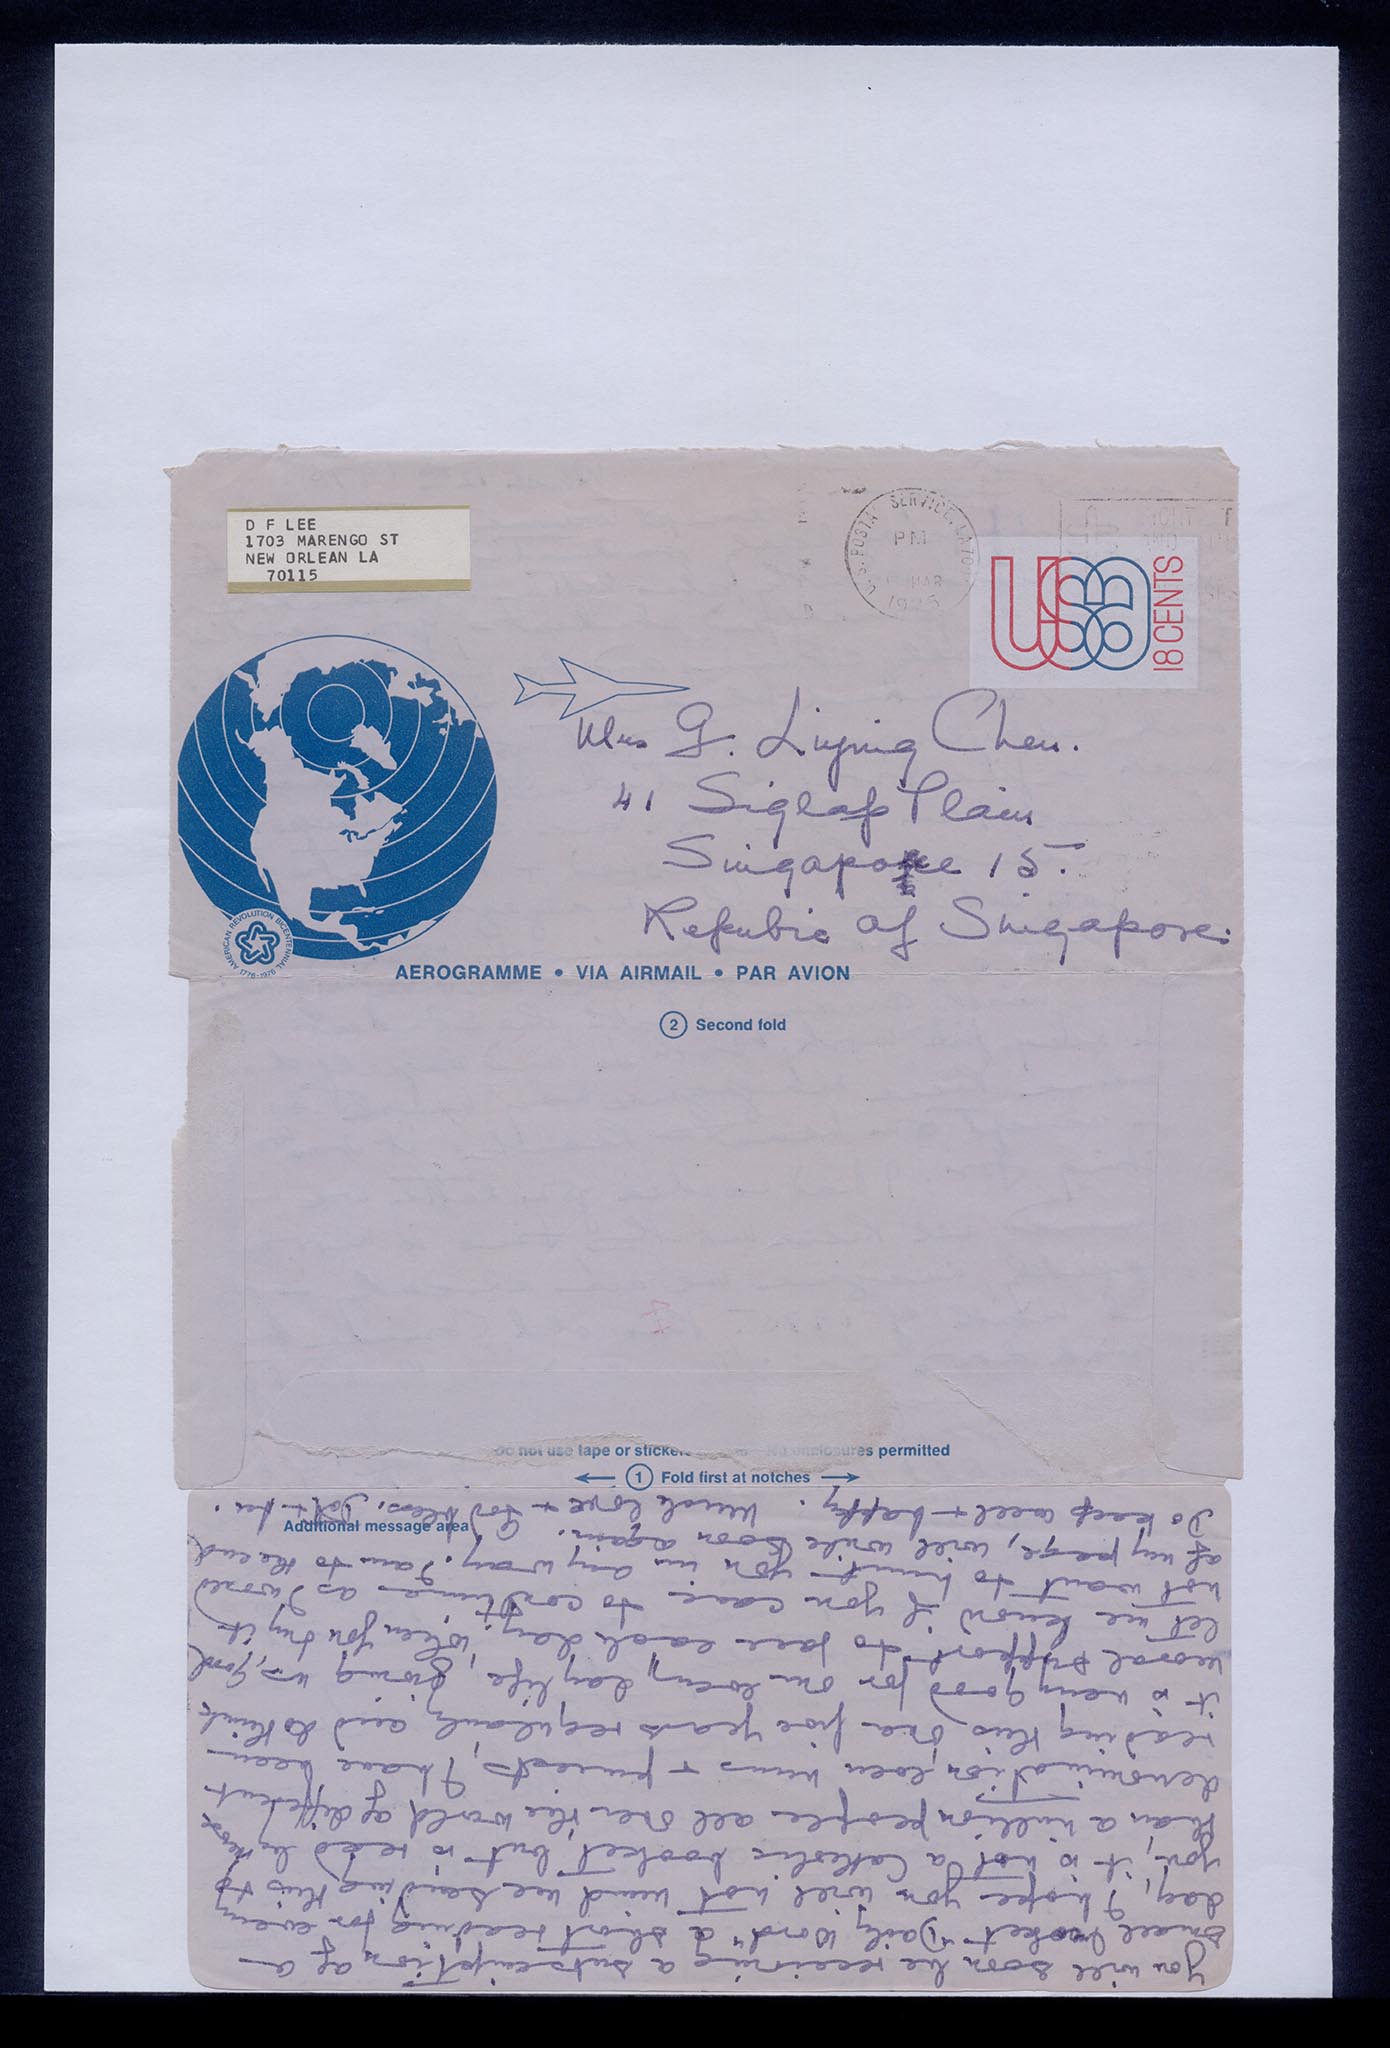 D F LEE
1703 MARENGO ST
NEW ORLEAN LA
70115
U.S. POSTAL SERVICE, LA 701
PM
MAR
USA
18 CENTS
Mrs G. Liying Chen.
41 Siglap Plain
Singapore 15.
Repubic of Singapore.
AMERICAN REVOLUTION BICENTENNIAL
1776-1976
AEROGRAMME • VIA AIRMAIL • PAR AVION
2 Second fold
Do not use tape or stickers No enclosures permitted
1 Fold first at notches
Additional message area
You will soon be receiving a subscription of a
small booket "Daily Word" a short reading for every
day, I hope you will not mind me sending this to
you, it is not a Catholic booket, but is read by more
than a million people all over the world of different
denomination, even nuns + priests, I have been
reading this over five years regularly and I think
it is very good for our every day life, giving us, good
moral support to face each day, when you try it
let me know if you care to continue as I would
not want to you in any way. I am to the end
of my page, will write soon again.
Do keep well + happy. Much love + God bless,